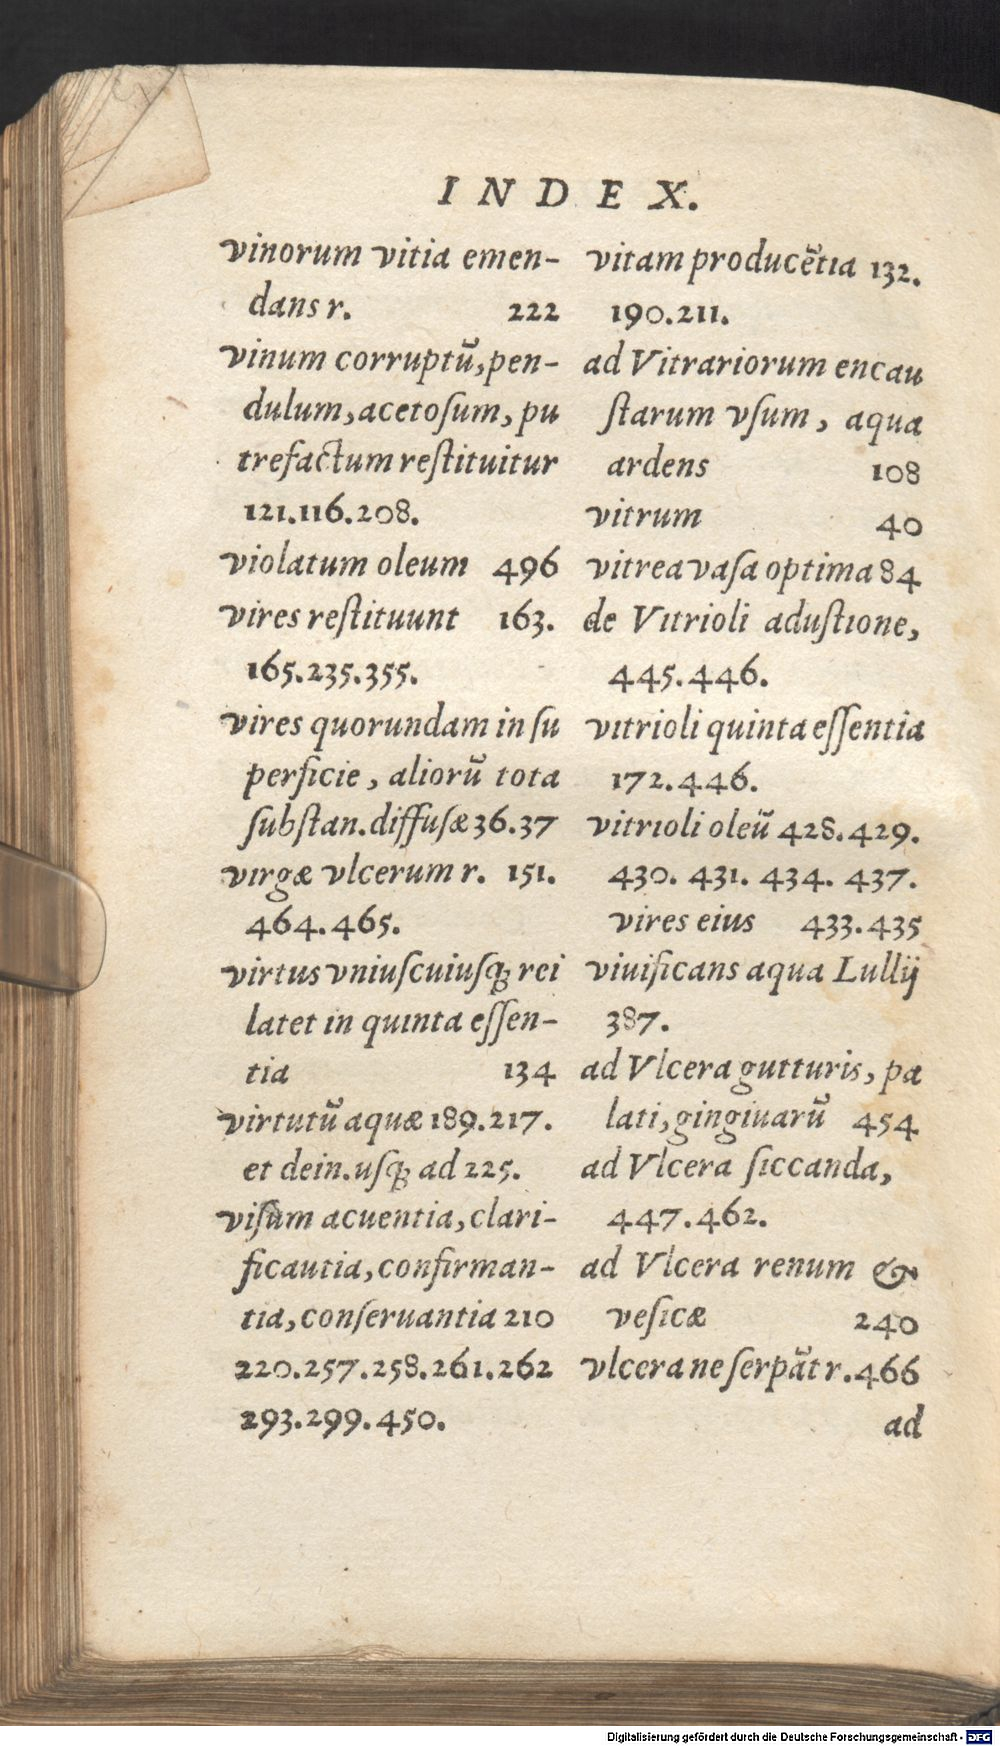 INDEX.
vinorum vitia emen-
dans r. 222
vinum corruptũ, pen-
dulum, acetoſum, pu
trefactum reſtituitur
121.116.208.
violatum oleum 496
vires reſtituunt 163.
165.235.355.
vires quorundam in ſu
perficie, aliorũ tota
ſubſtan. diffuſæ 36.37
virgæ vlcerum r. 151.
464.465.
virtus vniuſcuiuſqꝫ rei
latet in quinta eſſen-
tia 134
virtutũ aquæ 189.217.
et dein. uſqꝫ ad 225.
viſum acuentia, clari-
ficautia, confirman-
tia, conſeruantia 210
220.257.258.261.262
293.299.450.
vitam producẽtia 132.
190.211.
ad Vitrariorum encau
ſtarum vſum, aqua
ardens 108
vitrum 40
vitrea vaſa optima 84
de Vitrioli aduſtione,
445.446.
vitrioli quinta eſſentia
172.446.
vitrioli oleũ 428.429.
430. 431. 434. 437.
vires eius 433.435
viuificans aqua Lullij
387.
ad Vlcera gutturis, pa
lati, gingiuarũ 454
ad Vlcera ſiccanda,
447.462.
ad Vlcera renum &
veſicæ 240
vlcera ne ſerpãt r. 466
ad
Digitalisierung gefördert durch die Deutsche Forschungsgemeinschaft - DFG